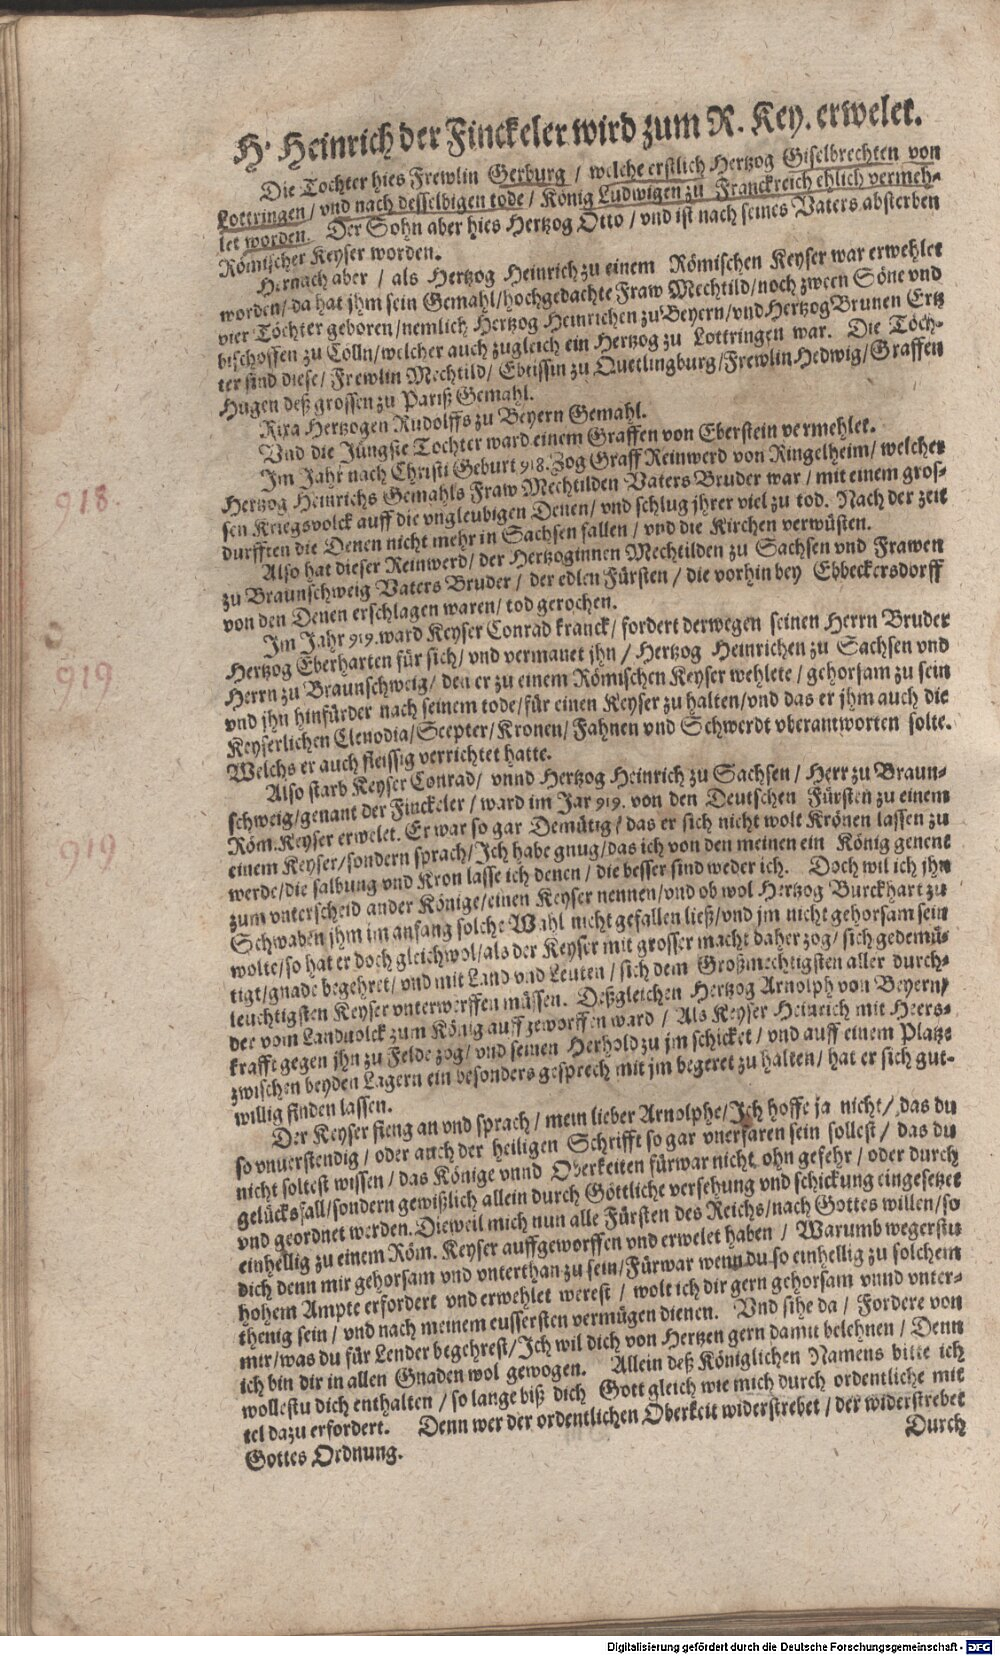 H. Heinrich der Finckeler wird zum R. Key. erwelet.
Die Tochter hies Frewlin Gerburg / welche erstlich Hertzog Giselbrechten von
Lottringen / vnd nach desselbigen tode / König Ludwigen zu Franckreich ehlich vermeh-
let worden. Der Sohn aber hies Hertzog Otto / vnd ist nach seines Vaters absterben
Römischer Keyser worden.
Hernach aber / als Hertzog Heinrich zu einem Römischen Keyser war erwehlet
worden / da hat jhm sein Gemahl / hochgedachte Fraw Mechtild / noch zween Söne vnd
vier Töchter geboren / nemlich Hertzog Heinrichen zu Beyern / vnd Hertzog Brunen Ertz
bischoffen zu Cölln / welcher auch zugleich ein Hertzog zu Lottringen war. Die Töch-
ter sind diese / Frewlin Mechtild / Ebtissin zu Quetlingburg / Frewlin Hedwig / Graffen
Hugen deß grossen zu Pariß Gemahl.
Rixa Hertzogen Rudolffs zu Beyern Gemahl.
Vnd die Jüngste Tochter ward einem Graffen von Eberstein vermehlet.
Im Jahr nach Christi Geburt 918. Zog Graff Reinwerd von Ringelheim / welcher
Hertzog Heinrichs Gemahls Fraw Mechtilden Vaters Bruder war / mit einem gros-
sen Kriegsvolck auff die vngleubigen Denen / vnd schlug jhrer viel zu tod. Nach der zeit
durfften die Denen nicht mehr in Sachsen fallen / vnd die Kirchen verwüsten.
Also hat dieser Reinwerd / der Hertzoginnen Mechtilden zu Sachsen vnd Frawen
zu Braunschweig Vaters Bruder / der edlen Fürsten / die vorhin bey Ebbeckersdorff
von den Denen erschlagen waren / tod gerochen.
Im Jahr 919. ward Keyser Conrad kranck / fordert derwegen seinen Herrn Bruder
Hertzog Eberharten für sich / vnd vermanet jhn / Hertzog Heinrichen zu Sachsen vnd
Herrn zu Braunschweig / den er zu einem Römischen Keyser wehlete / gehorsam zu sein
vnd jhn hinfürder nach seinem tode / für einen Keyser zu halten / vnd das er jhm auch die
Keyserlichen Clenodia / Scepter / Kronen / Fahnen vnd Schwerdt vberantworten solte.
Welchs er auch fleissig verrichtet hatte.
Also starb Keyser Conrad / vnnd Hertzog Heinrich zu Sachsen / Herr zu Braun-
schweig / genant der Finckeler / ward im Jar 919. von den Deutschen Fürsten zu einem
Röm. Keyser erwelet. Er war so gar Demütig / das er sich nicht wolt Krönen lassen zu
einem Keyser / sondern sprach / Ich habe gnug / das ich von den meinen ein König genent
werde / die salbung vnd Kron lasse ich denen / die besser sind weder ich. Doch wil ich jhn
zum vnterscheid ander Könige / einen Keyser nennen / vnd ob wol Hertzog Burckhart zu
Schwaben jhm im anfang solche Wahl nicht gefallen ließ / vnd jm nicht gehorsam sein
wolte / so hat er doch gleichwol / als der Keyser mit grosser macht daher zog / sich gedemü-
tigt / gnade begehret / vnd mit Land vnd Leuten / sich dem Großmechtigsten aller durch-
leuchtigsten Keyser vnterwerffen müssen. Deßgleichen Hertzog Arnolph von Beyern /
der vom Landvolck zum König auffgeworffen ward / Als Keyser Heinrich mit Heers-
krafft gegen jhn zu Felde zog / vnd seinen Herhold zu jm schicket / vnd auff einem Platze
zwischen beyden Lagern ein besonders gesprech mit jm begeret zu halten / hat er sich gut-
willig finden lassen.
Der Keyser fieng an vnd sprach / mein lieber Arnolphe / Ich hoffe ja nicht / das du
so vnuerstendig / oder auch der heiligen Schrifft so gar vnerfaren sein sollest / das du
nicht soltest wissen / das Könige vnnd Oberkeiten fürwar nicht ohn gefehr / oder durch
gelücksfall / sondern gewißlich allein durch Göttliche versehung vnd schickung eingesetzet
vnd geordnet werden. Dieweil mich nun alle Fürsten des Reichs / nach Gottes willen / so
einhellig zu einem Röm. Keyser auffgeworffen vnd erwelet haben / Warumb wegerstu
dich denn mir gehorsam vnd vnterthan zu sein / Fürwar wenn du so einhellig zu solchem
hohem Ampte erfordert vnd erwehlet werest / wolt ich dir gern gehorsam vnnd vnter-
thenig sein / vnd nach meinem eussersten vermügen dienen. Vnd sihe da / Fordere von
mir / was du für Lender begehrest / Ich wil dich von Hertzen gern damit belehnen / Denn
ich bin dir in allen Gnaden wol gewogen. Allein deß Königlichen Namens bitte ich
wollestu dich enthalten / so lange biß dich Gott gleich wie mich durch ordentliche mit
tel dazu erfordert. Denn wer der ordentlichen Oberkeit widerstrebet / der widerstrebet
Gottes Ordnung.
Durch
918.
919
919
Digitalisierung gefördert durch die Deutsche Forschungsgemeinschaft - DFG